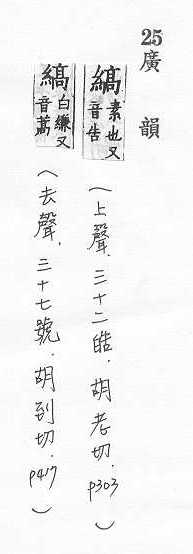 25 廣韻
縞素也又音告（上聲．三十二皓．胡老切．P303）
縞白縑又音藁（去聲．三十七號．胡到切．P417）